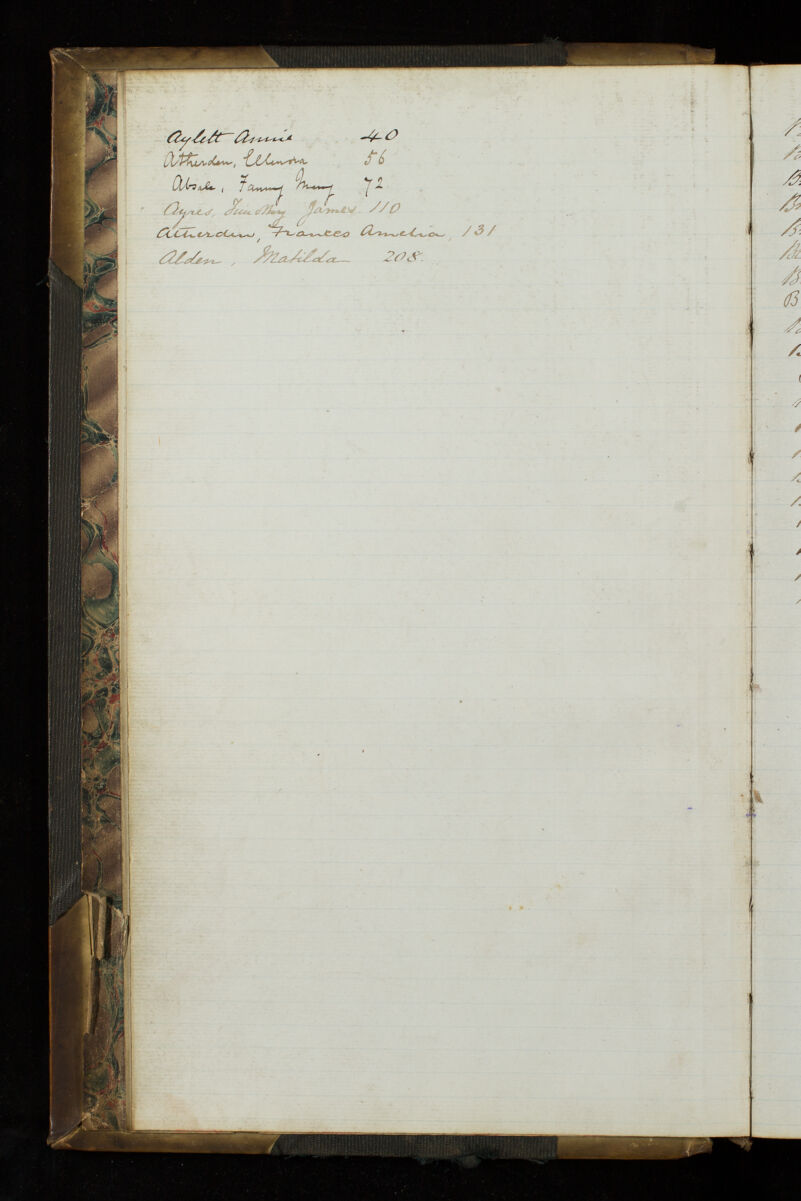 Aylett Annie 40
Atherden, Ellenora 56
Absale, Fanny Mary 72
Ayres, Timothy James 110
Atherden, Frances Amelia, 131
Alden, Matilda 208.